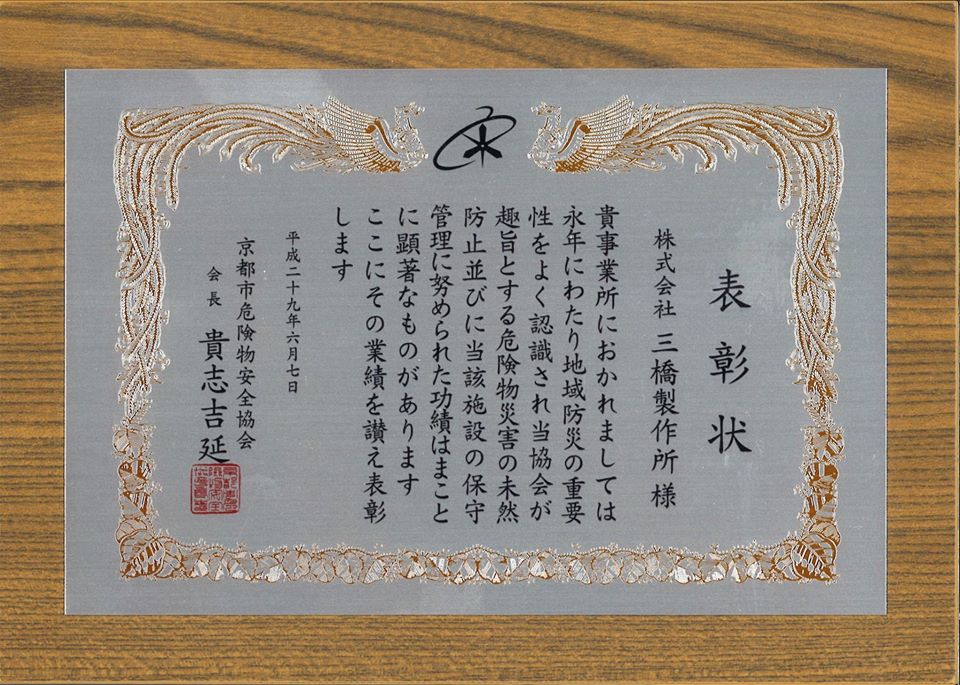 表彰状
株式会社 三橋製作所 様
貴事業所におかれましては
永年にわたり地域防災の重要
性をよく認識され当協会が
趣旨とする危険物災害の未然
防止並びに当該施設の保守
管理に努められた功績はまこと
に顕著なものがあります
ここにその業績を讃え表彰
します
平成二十九年六月七日
京都市危険物安全協会
会長 貴志吉延